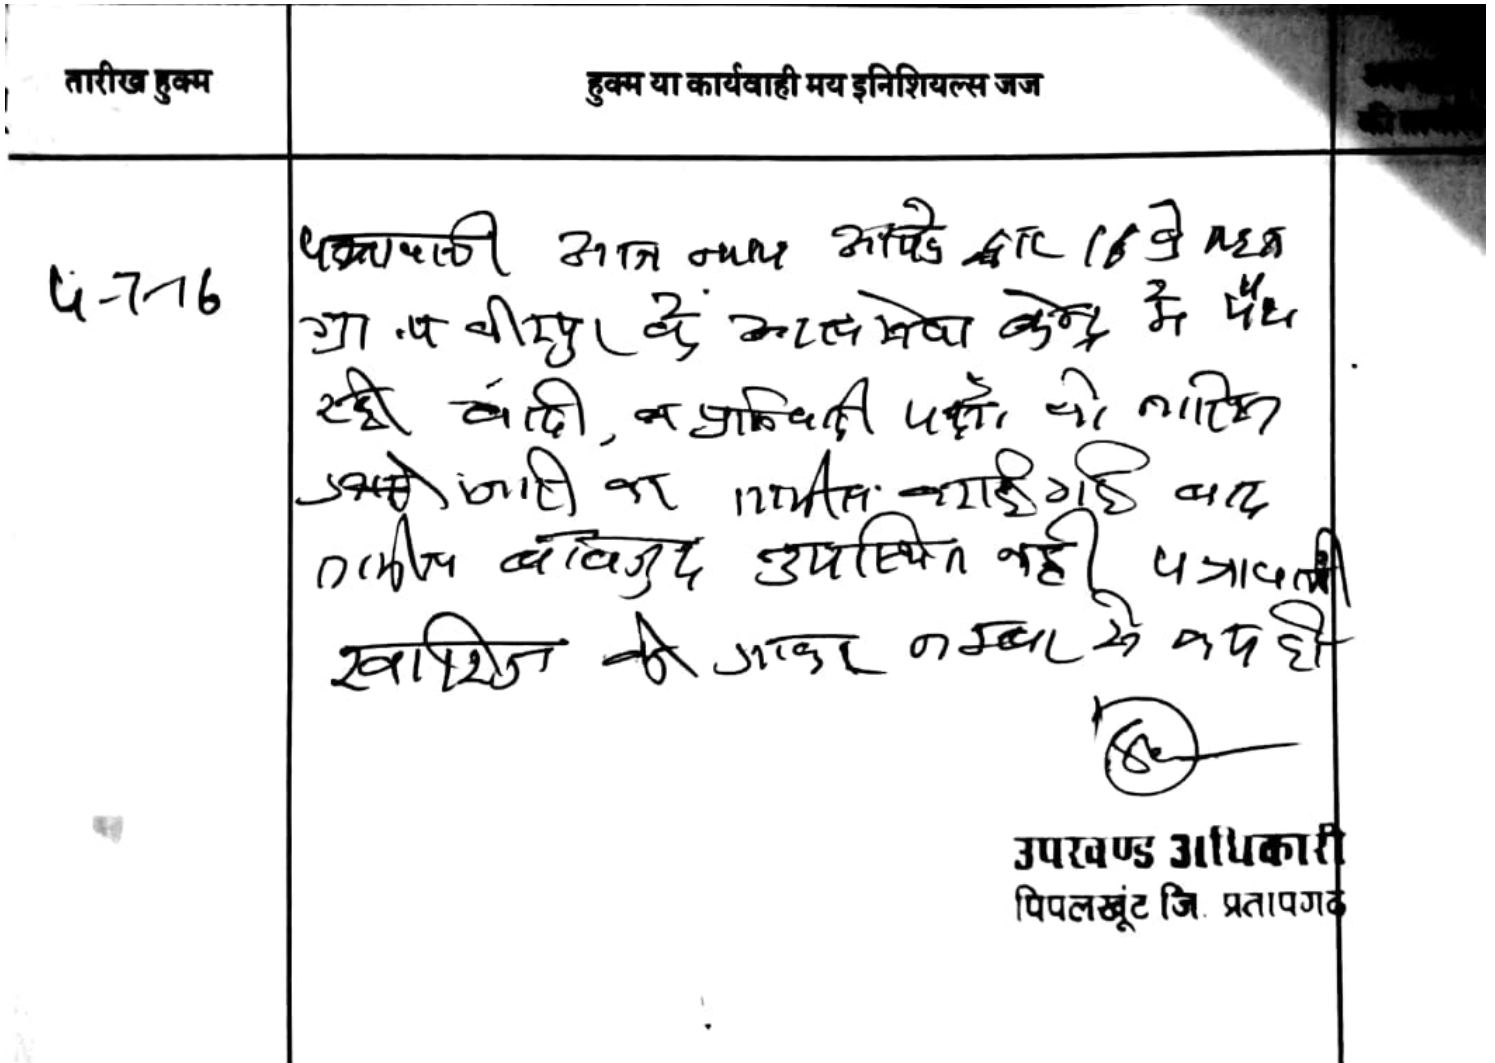 तारीख हुक्म
हुक्म या कार्यवाही मय इनिशियल्स जज
पत्रावली आज न्याय आपके द्वार 16 के तहत
5-7-16
ग्रा.प वीरपुर के अटल सेवा केन्द्र में पेश
रही वादी, व प्रतिवादी पक्षों को नोटिस
जारी कर तामील कराई गई बाद
तामील बावजुद उपस्थित नही पत्रावली
खारिज की जाकर नम्बर से कम हो
उपखण्ड अधिकारी
पिपलखूंट जि. प्रतापगढ